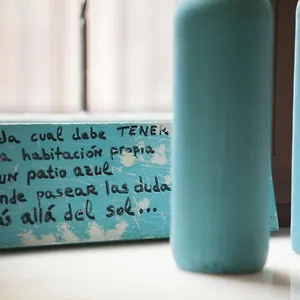 da cual debe TENER
a habitación propia
UN patio azul
nde pasear las duda
ás allá del sol...